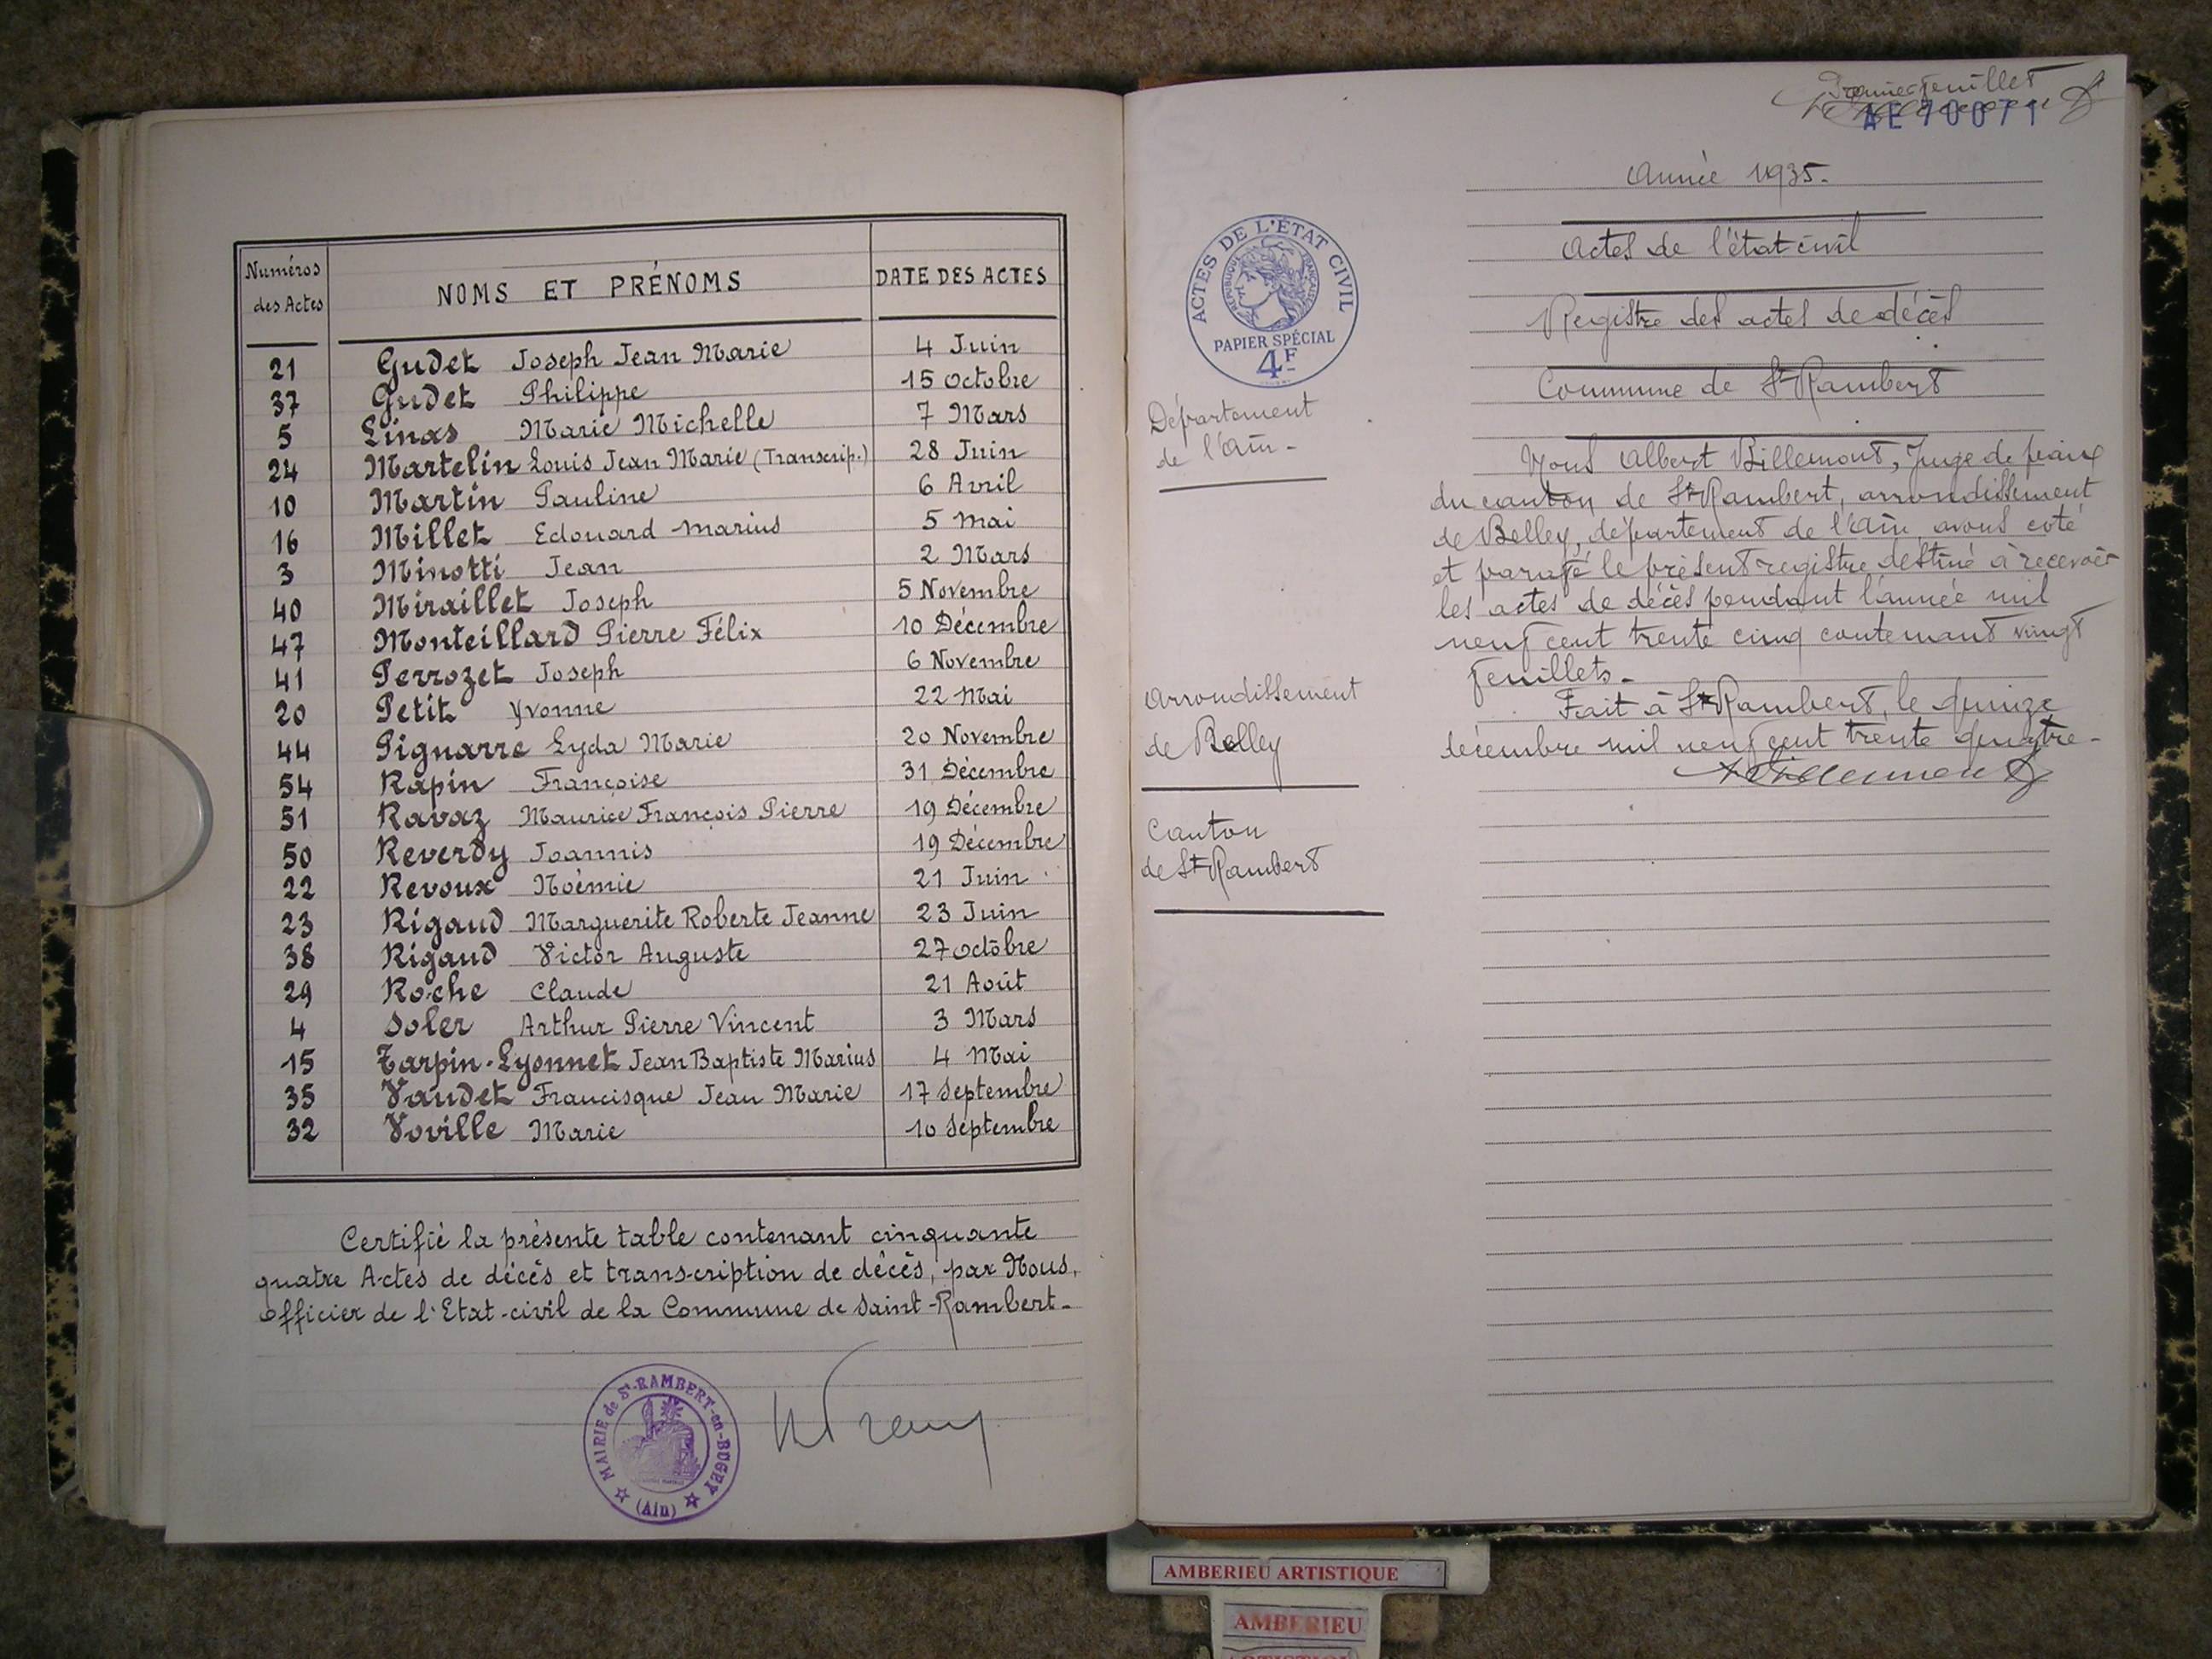 Numéros des Actes NOMS ET PRÉNOMS DATE DES ACTES
21 Gudet Joseph Jean Marie 4 Juin
37 Gudet Philippe 15 octobre
5 Linas Marie Michelle 7 Mars
24 Martelin Louis Jean Marie (Transcrip.) 28 Juin
10 Martin Pauline 6 Avril
16 Millet Edouard Marius 5 Mai
3 Minotti Jean 2 Mars
40 Miraillet Joseph 5 Novembre
47 Monteillard Pierre Félix 10 Décembre
41 Perrozet Joseph 6 Novembre
20 Petit Yvonne 22 Mai
44 Pignarre Lyda Marie 20 Novembre
54 Rapin Françoise 31 Décembre
51 Ravaz Maurice François Pierre 19 Décembre
50 Reverdy Joannis 19 Décembre
22 Revoux Noèmie 21 Juin
23 Rigaud Marguerite Roberte Jeanne 23 Juin
38 Rigaud Victor Auguste 27 octobre
29 Roche Claude 21 Août
4 Soler Arthur Pierre Vincent 3 Mars
15 Tarpin-Lyonnet Jean Baptiste Marius 4 Mai
35 Vaudet Francisque Jean Marie 17 Septembre
32 Voville Marie 10 Septembre
Certifié la présente table contenant cinquante
quatre Actes de décès et transcription de décès, par Nous,
officier de l'Etat-civil de la Commune de Saint-Rambert.
MAIRIE de St-RAMBERT-en-BUGEY
(Ain)
Premier feuillet
AE 70071
ACTES DE L'ÉTAT CIVIL
RÉPUBLIQUE FRANÇAISE
PAPIER SPÉCIAL
4F
Département
de l'Ain-
Arrondissement
de Belley
Canton
de St Rambert
Année 1935.
Actes de l'état civil
Registre des actes de décès
Commune de St Rambert
Nous Albert Billemont, Juge de paix
du canton de St Rambert, arrondissement
de Belley, département de l'Ain, avons coté
et parafé le présent registre destiné à recevoir
les actes de décès pendant l'année mil
neuf cent trente cinq contenant vingt
feuillets.
Fait à St Rambert, le quinze
décembre mil neuf cent trente quatre-
ABillemont
AMBERIEU ARTISTIQUE
AMBERIEU
ARTISTIQUE